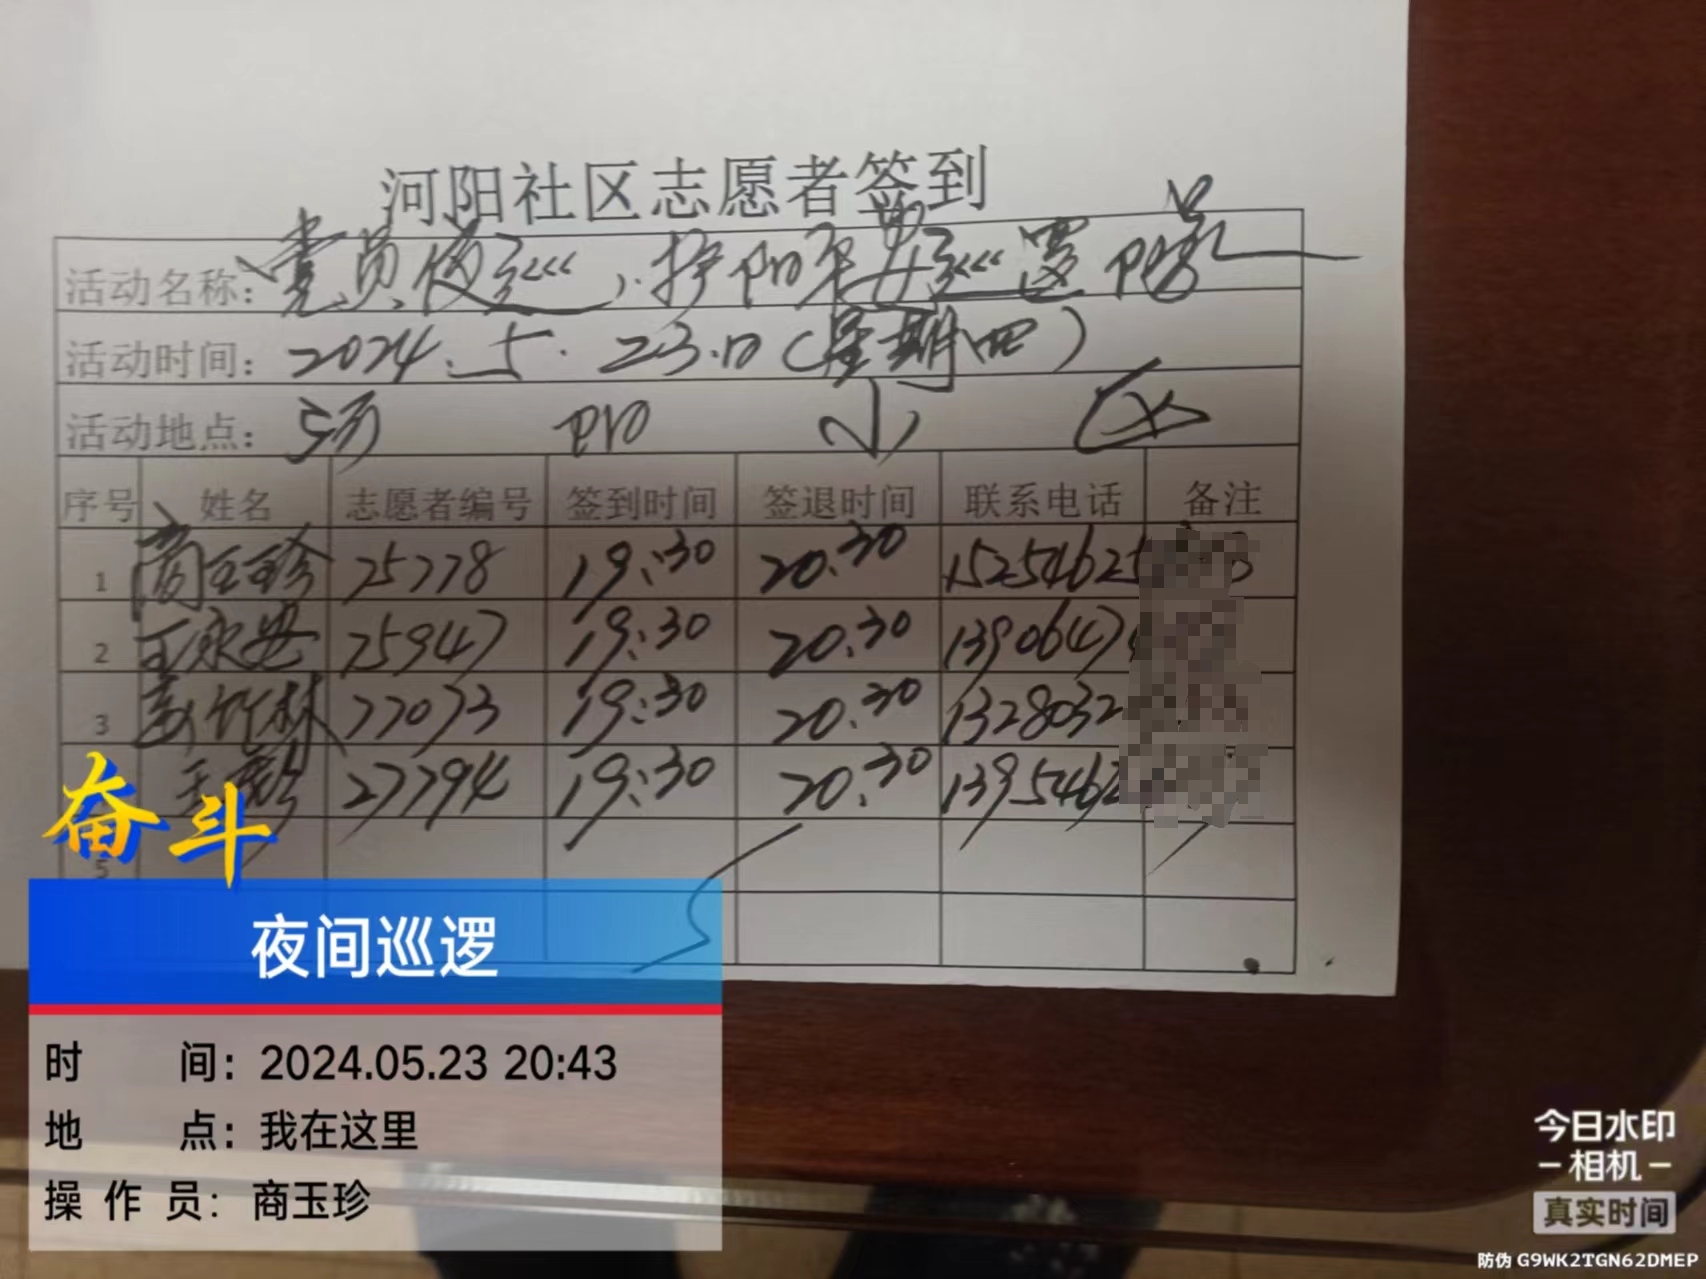 河阳社区志愿者签到
活动名称：党员夜巡、护阳平安巡逻队
活动时间：2024.5.23日(星期四)
活动地点：河阳小区
序号 姓名 志愿者编号 签到时间 签退时间 联系电话 备注
1 商玉珍 25778 19:30 20:30 15254625
2 王永安 25947 19:30 20:30 1390647
3 竹林 77073 19:30 20:30 1328032
王 27794 19:30 20:30 1395462
5
奋斗
夜间巡逻
时 间：2024.05.23 20:43
地 点：我在这里
操作员：商玉珍
今日水印
-相机-
真实时间
防伪 G9WK2TGN62DMEP